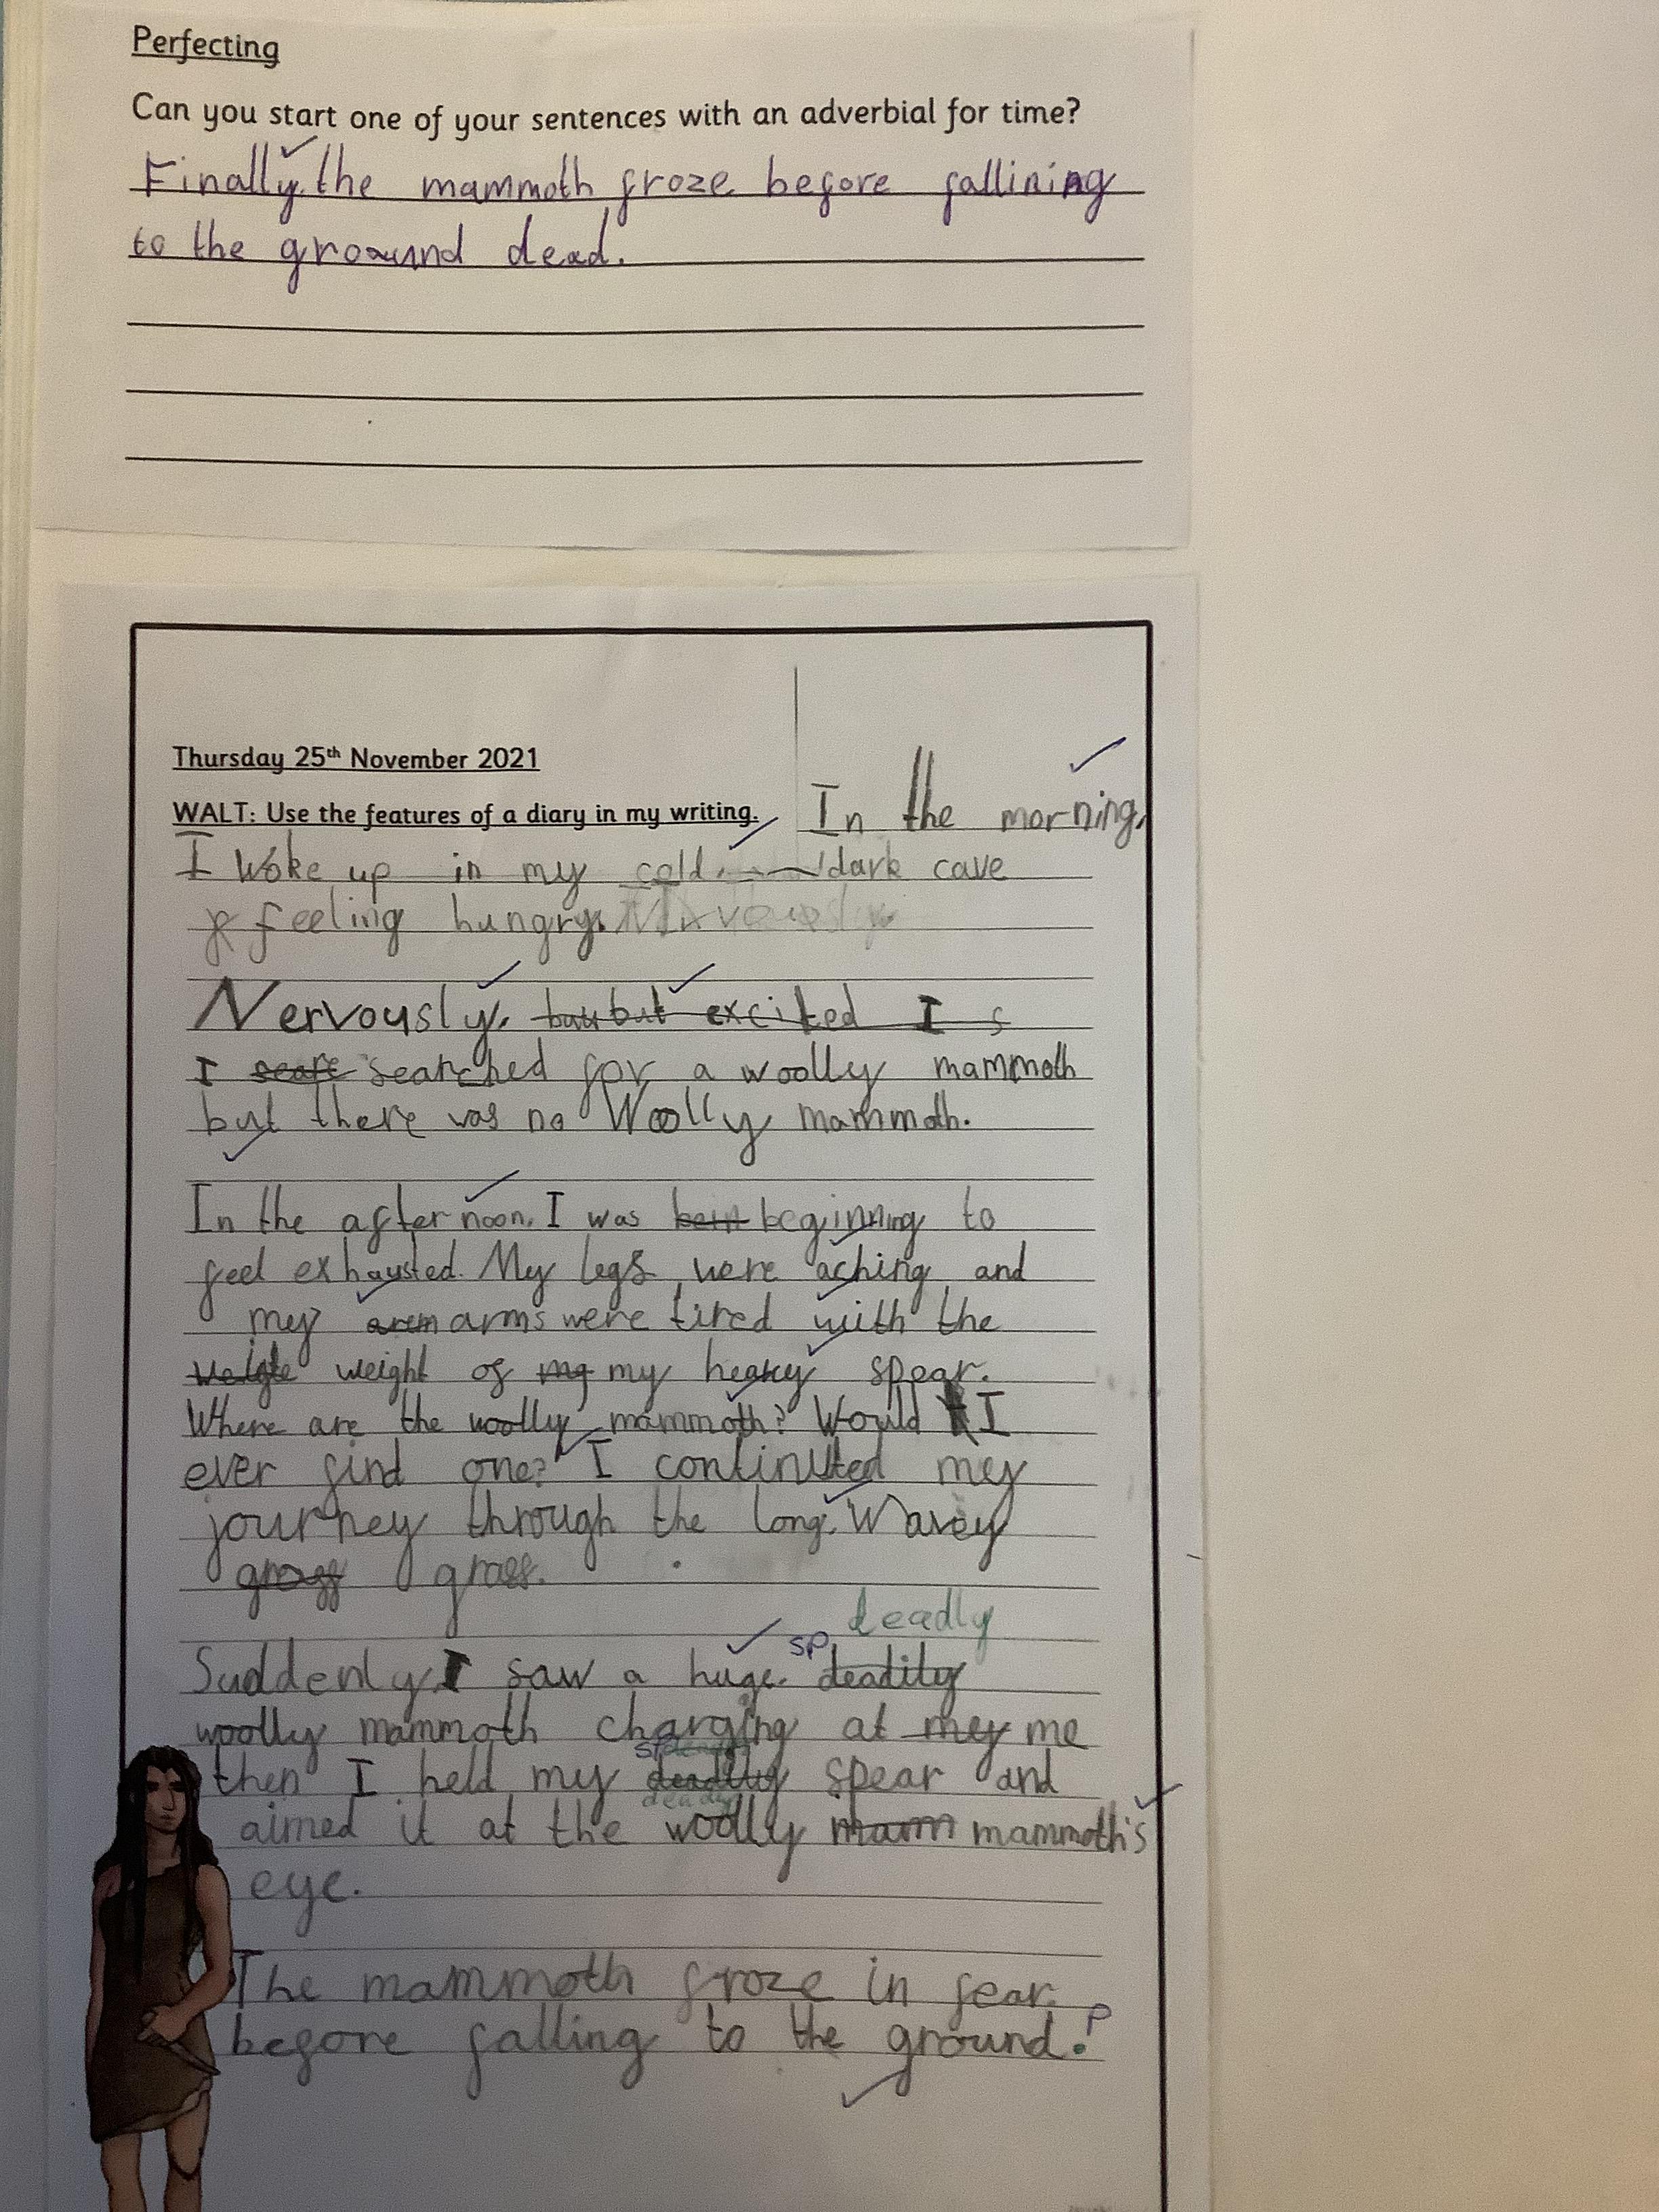 Perfecting
Can you start one of your sentences with an adverbial for time?
Finally, the mammoth froze before fallining
to the groaund dead.
Thursday 25th November 2021
WALT: Use the features of a diary in my writing.
In the morning,
I woke up in my cold, dark cave
feeling hungry. Nervously,
Nervously, but excited I s
I searched for a woolly mammoth
but there was no Woolly mammoth.
In the afternoon, I was bein beginning to
feel exhausted. My legs were aching and
my arem arms were tired with the
weight of my my heavy spear.
Where are the woolly mammoth? Would I
ever find one? I continuted my
journey through the long, Wavey
grass grass.
deadly
Suddenly, I saw a huge, sp deadily
woolly mammoth charging at mey me
sp
then I held my deadily spear and
deadly
aimed it at the woolly mam mammoth's
eye.
The mammoth froze in fear
P
before falling to the ground.